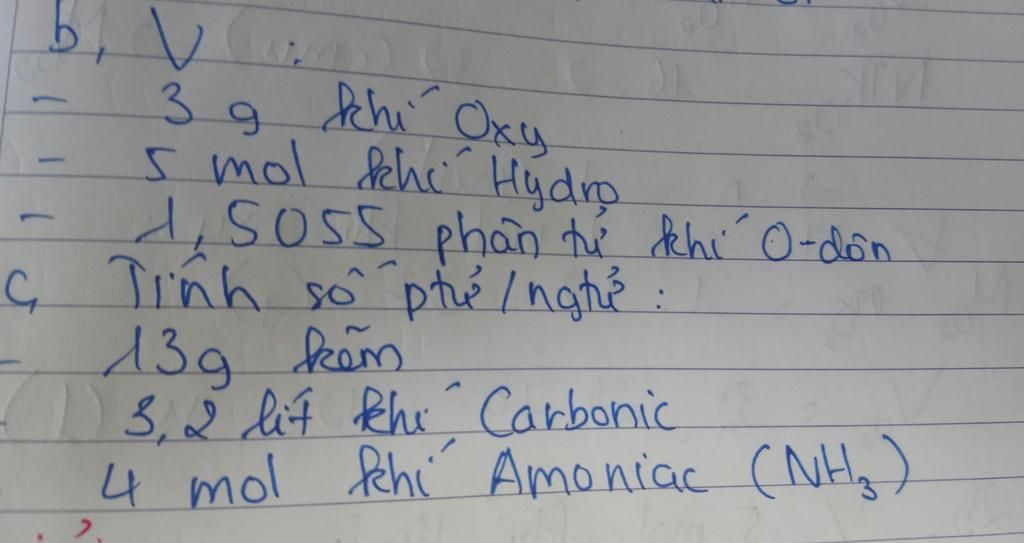 b, V :
- 3 g khí Oxy
- 5 mol khí Hydro
- 1,5055 phân tử khí O-dôn
c, Tính số ptử/ngtử :
- 13g kẽm
3,2 lít khí Carbonic
4 mol khí Amoniac (NH₃)